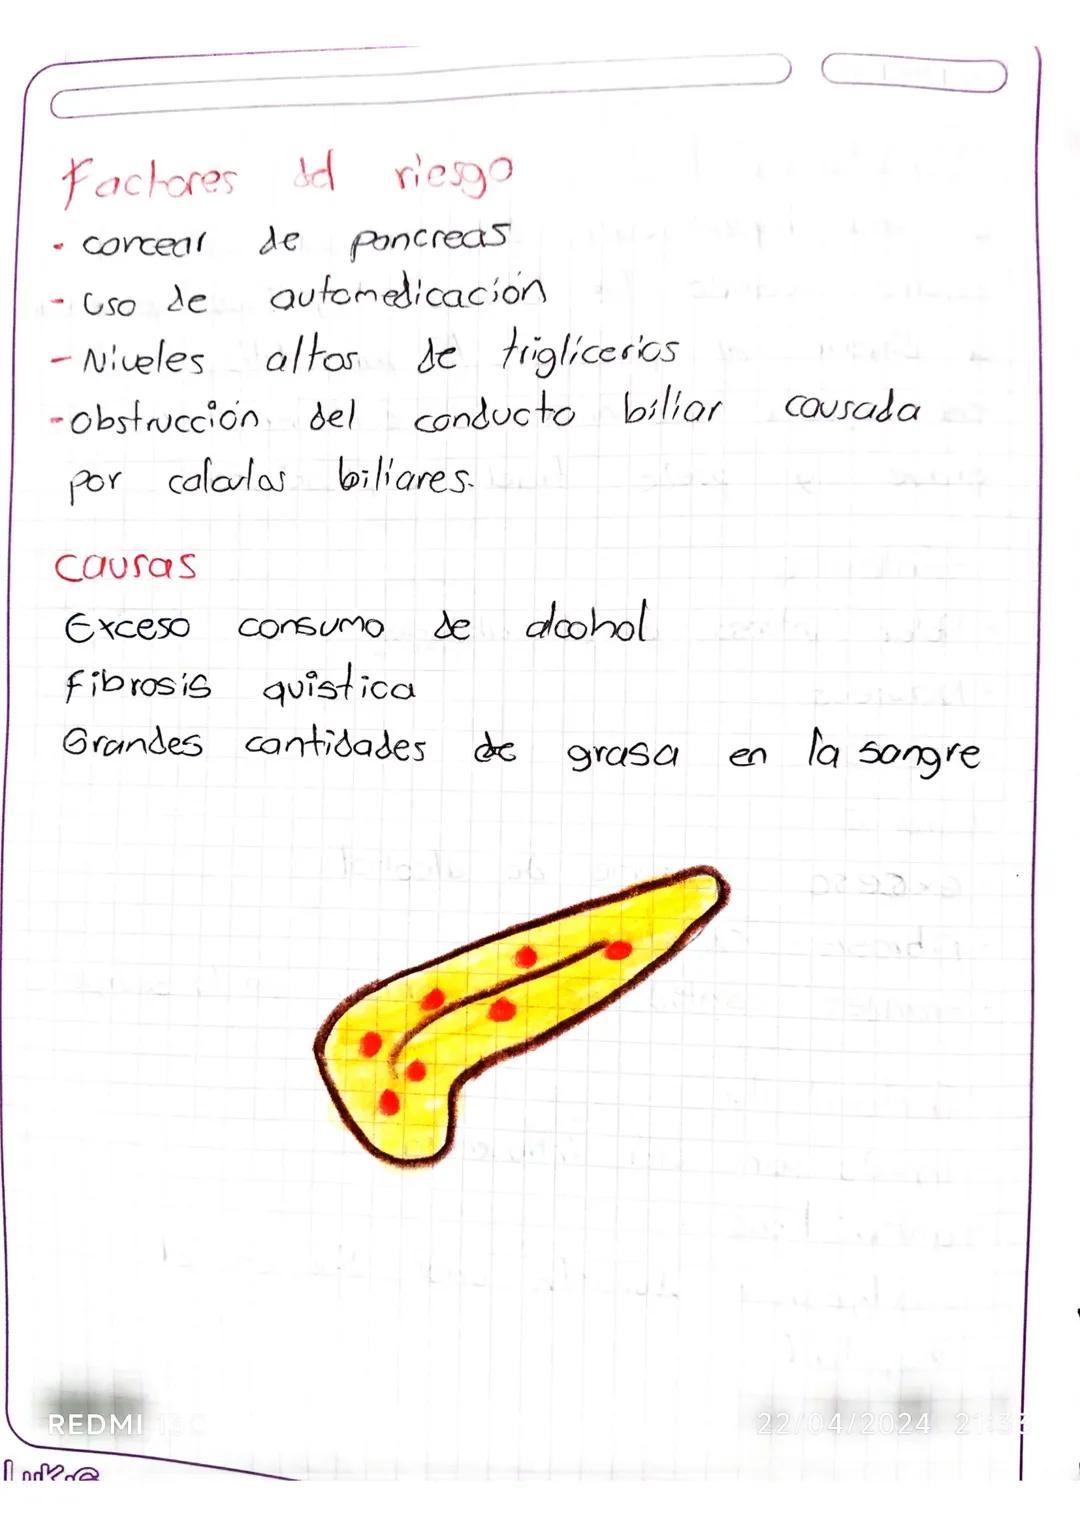 Factores del riesgo
- concear de pancreas
- uso de automedicación
- Niveles altos de triglicerios
- obstrucción del conducto biliar causada
por calculos biliares.
causas
Exceso consumo de alcohol
Fibrosis quistica
Grandes cantidades de grasa en la sangre
REDMI 13C
22/04/2024 21:33